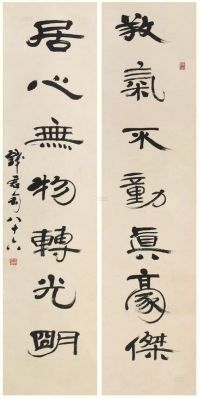 敬氣不動真豪傑
居心無物轉光明
錢君匋八十六